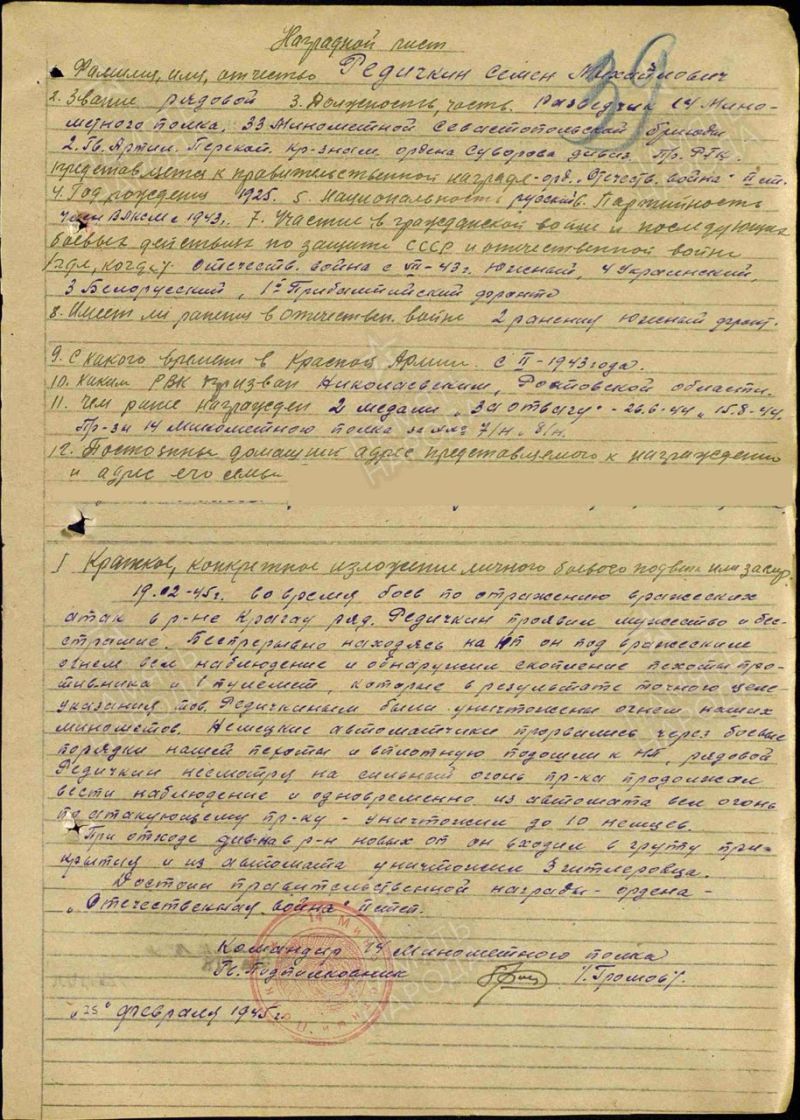 Наградной лист
39
1. Фамилия, имя, отчество Редичкин Семен Михайлович
2. Звание рядовой 3. Должность, часть Разведчик 14 Мино-
метного полка, 33 Минометной Севастопольской бригады
2 Гв. Артил. Перекоп. кр-знам. ордена Суворова дивиз. Пр. РГК.
представляется к правительственной награде - орд. "Отечеств. война" II ст.
4. Год рождения 1925. 5. Национальность русский 6. Партийность
член ВЛКСМ с 1943г. 7. Участие в гражданской войне и последующих
боевых действиях по защите СССР и отечественной войне
/где, когда/ Отечеств. война с VII-43г. Южный, 4 Украинский,
3 Белорусский, 1й Прибалтийский фронта
8. Имеет ли ранения в отечествен. войне 2 ранения Южный фронт.
9. С какого времени в Красной Армии с II-1943 года.
10. Каким РВК призван Николаевским, Ростовской области.
11. Чем ранее награжден 2 медали "За отвагу" - 26.6-44 15.8-44.
Пр-зы 14 Минометного полка за №№ 7/н, 8/н.
12. Постоянный домашний адрес представляемого к награждению
и адрес его семьи
I Краткое, конкретное изложение личного боевого подвига или заслуг.
19.02-45г. во время боев по отражению вражеских
атак в р-не Крагау ряд. Редичкин проявил мужество и бес-
страшие. Беспрерывно находясь на НП он под вражеским
огнем вел наблюдение и обнаружил скопление пехоты про-
тивника и 1 пулемет, которые в результате точного целе-
указания тов. Редичкиным были уничтожены огнем наших
минометов. Немецкие автоматчики прорвались через боевые
порядки нашей пехоты и вплотную подошли к НП, рядовой
Редичкин несмотря на сильный огонь пр-ка продолжал
вести наблюдение и одновременно из автомата вел огонь
по атакующему пр-ку - уничтожил до 10 немцев.
При отходе див-на в р-н новых оп он входил в группу при-
крытия и из автомата уничтожил 3 гитлеровца.
Достоин правительственной награды - ордена -
"Отечественная война" II степ.
Командир 14 Минометного полка
Гв. Подполковник /Громов/.
"25" февраля 1945г.